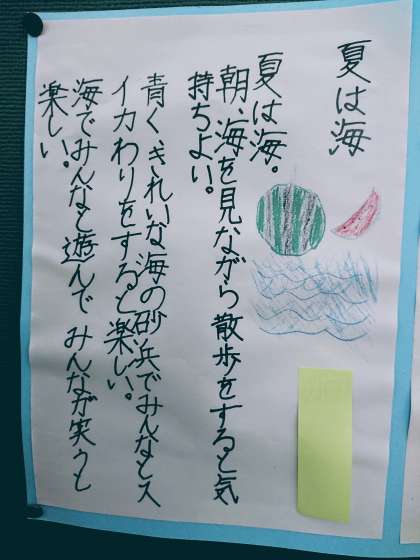 夏は海
夏は海。
朝、海を見ながら散歩をすると気
持ちよい。
青く、きれいな海の砂浜でみんなとス
イカわりをすると楽しい。
海でみんなと遊んでみんなが笑うと
楽しい。